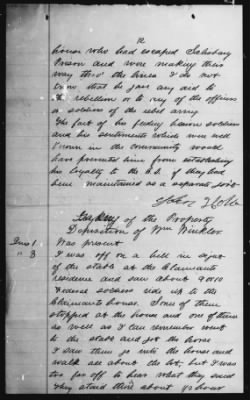 12
horses who had escaped Salisbury
Prison and were making their
way thro' the lines I do not
know that he gave any aid to
the rebellion or to any of the officers
or soldiers of the rebel army
The fact of his feeding Union soldiers
and his sentiments which were well
known in the community would
have prevented him from establishing
his loyalty to the C.S. if they had
been maintained as a separate Govt
Taking of the Property
Deposition of Wm Winkler
Ques 1. Was present
" 3 I was off on a hill in sight
of the stable at the Claimants
residence and saw about 9 or 10
Federal soldiers ride up to the
Claimants house. Some of them
stopped at the house and one of them
as well as I can remember went
to the stable and got the horse
I saw them go into the house and
walk about the lot, but I was
too far off to hear what they said
They staid there about ½ hour